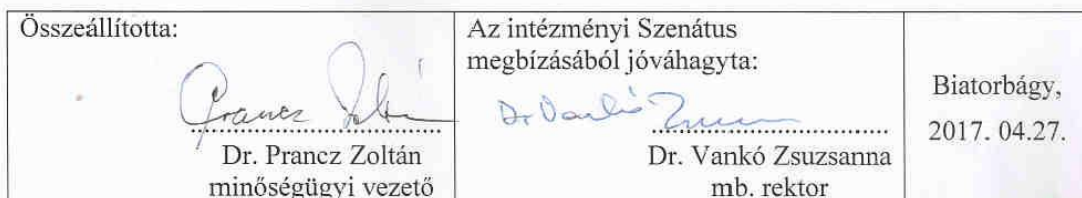 Összeállította:
Prancz Zoltán
Dr. Prancz Zoltán
minőségügyi vezető
Az intézményi Szenátus
megbízásából jóváhagyta:
Dr Vankó Zsuzsanna
Dr. Vankó Zsuzsanna
mb. rektor
Biatorbágy,
2017. 04.27.